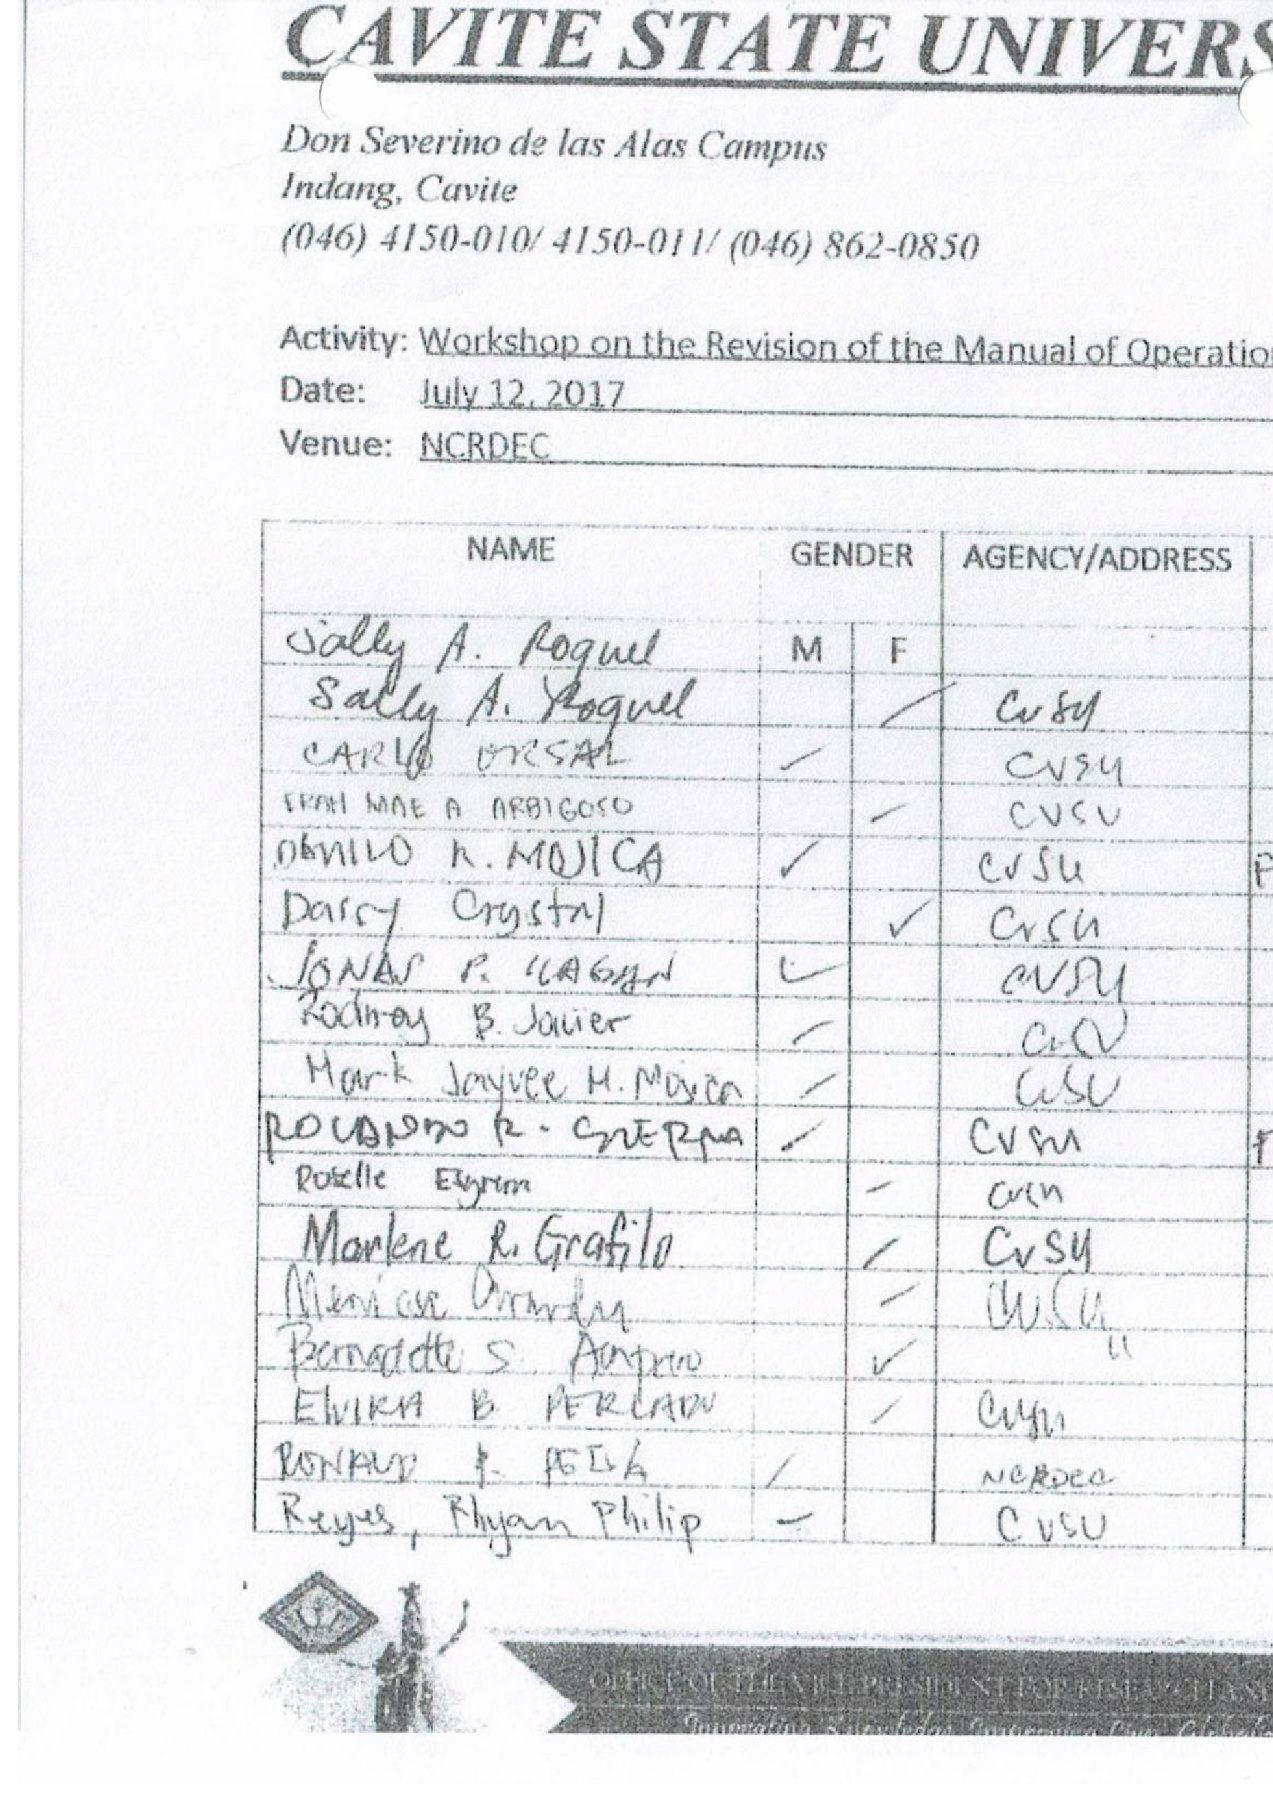 CAVITE STATE UNIVERS
Don Severino de las Alas Campus
Indang, Cavite
(046) 4150-010/ 4150-011/ (046) 862-0850
Activity: Workshop on the Revision of the Manual of Operatio
Date: July 12, 2017
Venue: NCRDEC
NAME GENDER AGENCY/ADDRESS
Sally A. Roquel M F
Sally A. Roquel CvSU
CARLO ORSAL CVSU
MAE A ARBIGOSO CVSU
DANILO N. MOJICA CvSU
Daisy Crystal CvSU
JONAS P. ILAGAN CVSU
Rodney B. Javier
Mark Jayvee M. Mojica CvSU
ROLANDO R. GUERRA CVSU
Roselle CVSU
Marlene R. Grafilo CvSU
CvSU
Bernadette S. "
ELVIRA B. PERLADO CvSU
RONALD P. PEÑA NCRDEC
Reyes, Rhyan Philip CVSU
OFFICE OF THE VICE PRESIDENT FOR RESEARCH